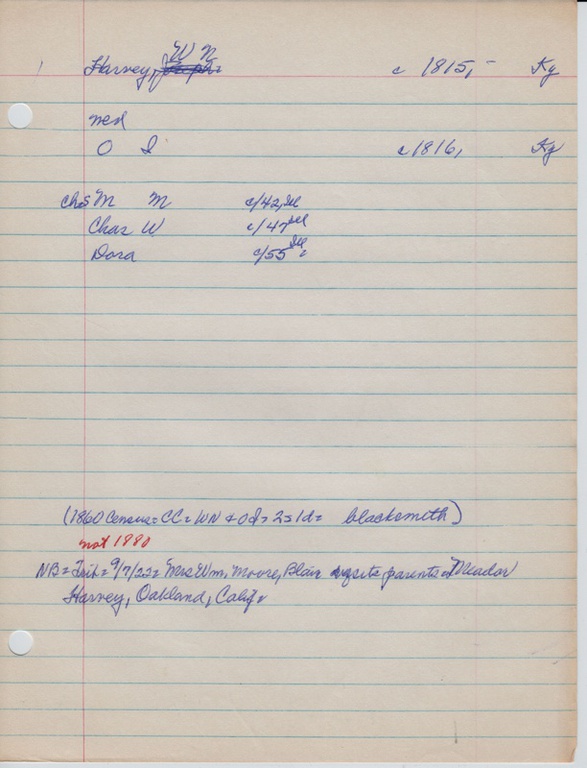 W N
Harvey, Joseph c 1815, - Ky
med
O I c 1816, Ky
chs M M c/42, Ill
Chas W c/47 Ill
Dora c/55 Ill
(1860 Census = CC = WN & O I = 2s 1d = blacksmith)
not 1880
NB = Trib = 9/7/22 = Mrs Wm, Moore, Blair parents Meador
Harvey, Oakland, Calif